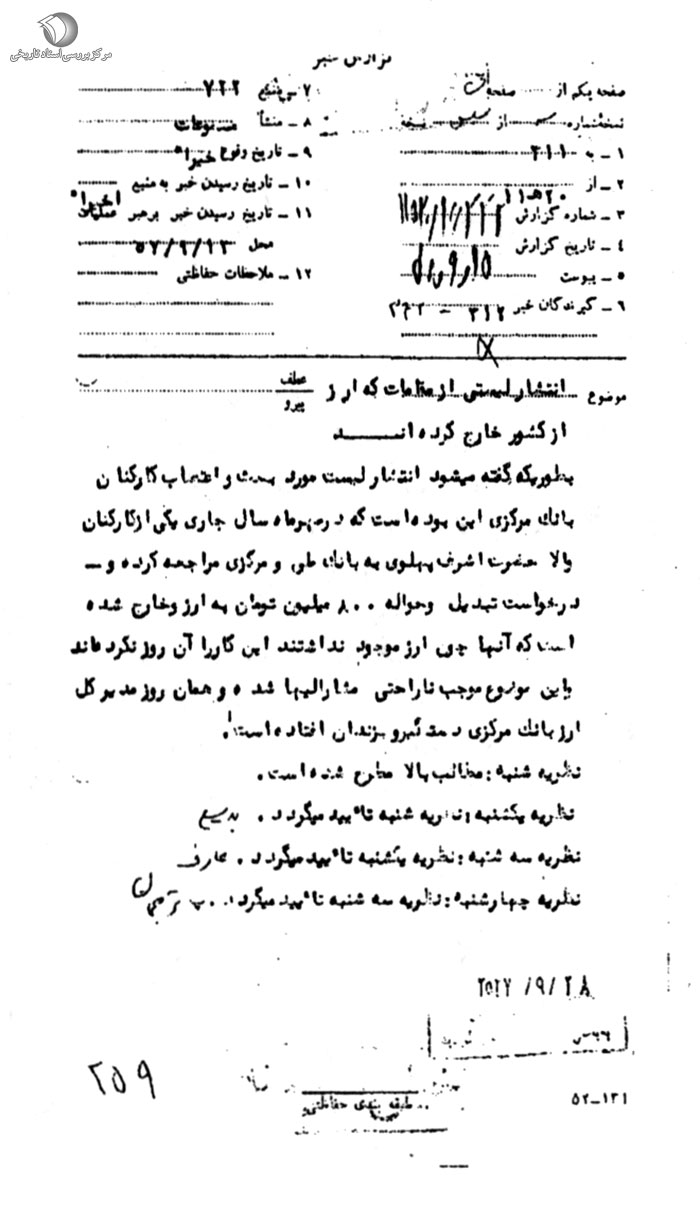 مرکز بررسی اسناد تاریخی
گزارش خبر
صفحه یکم از صفحه
نسخه شماره از نسخه
۱ ـ به ۳۱۱
۲ ـ از ۲۰ هـ ۱۱
۳ ـ شماره گزارش
۴ ـ تاریخ گزارش
۵ ـ پیوست
۶ ـ گیرندگان خبر ۳۱۲ ـ
۷ ـ منبع ۷۲۲
۸ ـ منشأ مسموعات
۹ ـ تاریخ وقوع اخیرا"
۱۰ ـ تاریخ رسیدن خبر به منبع اخیرا"
۱۱ ـ تاریخ رسیدن خبر برهبر عملیات
محل ۵۷/۹/۱۳
۱۲ ـ ملاحظات حفاظتی
موضوع انتشار لیستی از مقامات که ارز
از کشور خارج کرده‌انـــد
عطف
پیرو
بطوریکه گفته میشود انتشار لیست مورد بحث و اعتصاب کارکنان
بانک مرکزی این بوده است که در مهرماه سال جاری یکی از کارکنان
والا حضرت اشرف پهلوی به بانک ملی و مرکزی مراجعه کرده و ـ
درخواست تبدیل وحواله ۸۰۰ میلیون تومان به ارز وخارج شده
است که آنها چون ارز موجود نداشتند این کاررا آن روز نکرده‌اند
واین موضوع موجب ناراحتی مشارالیها شده و همان روز مدیر کل
ارز بانک مرکزی دستگیر و بزندان افتاده است.
نظریه شنبه : مطالب بالا مطرح شده است .
نظریه یکشنبه : نظریه شنبه تائید میگردد . بدیع
نظریه سه شنبه : نظریه یکشنبه تائید میگردد . عارف
نظریه چهارشنبه : نظریه سه شنبه تائید میگردد .
۲۵۳۷ /۹/ ۲۸
۶۶-س
۱۳۱-۵۲
طبقه بندی حفاظتی
۲۵۹